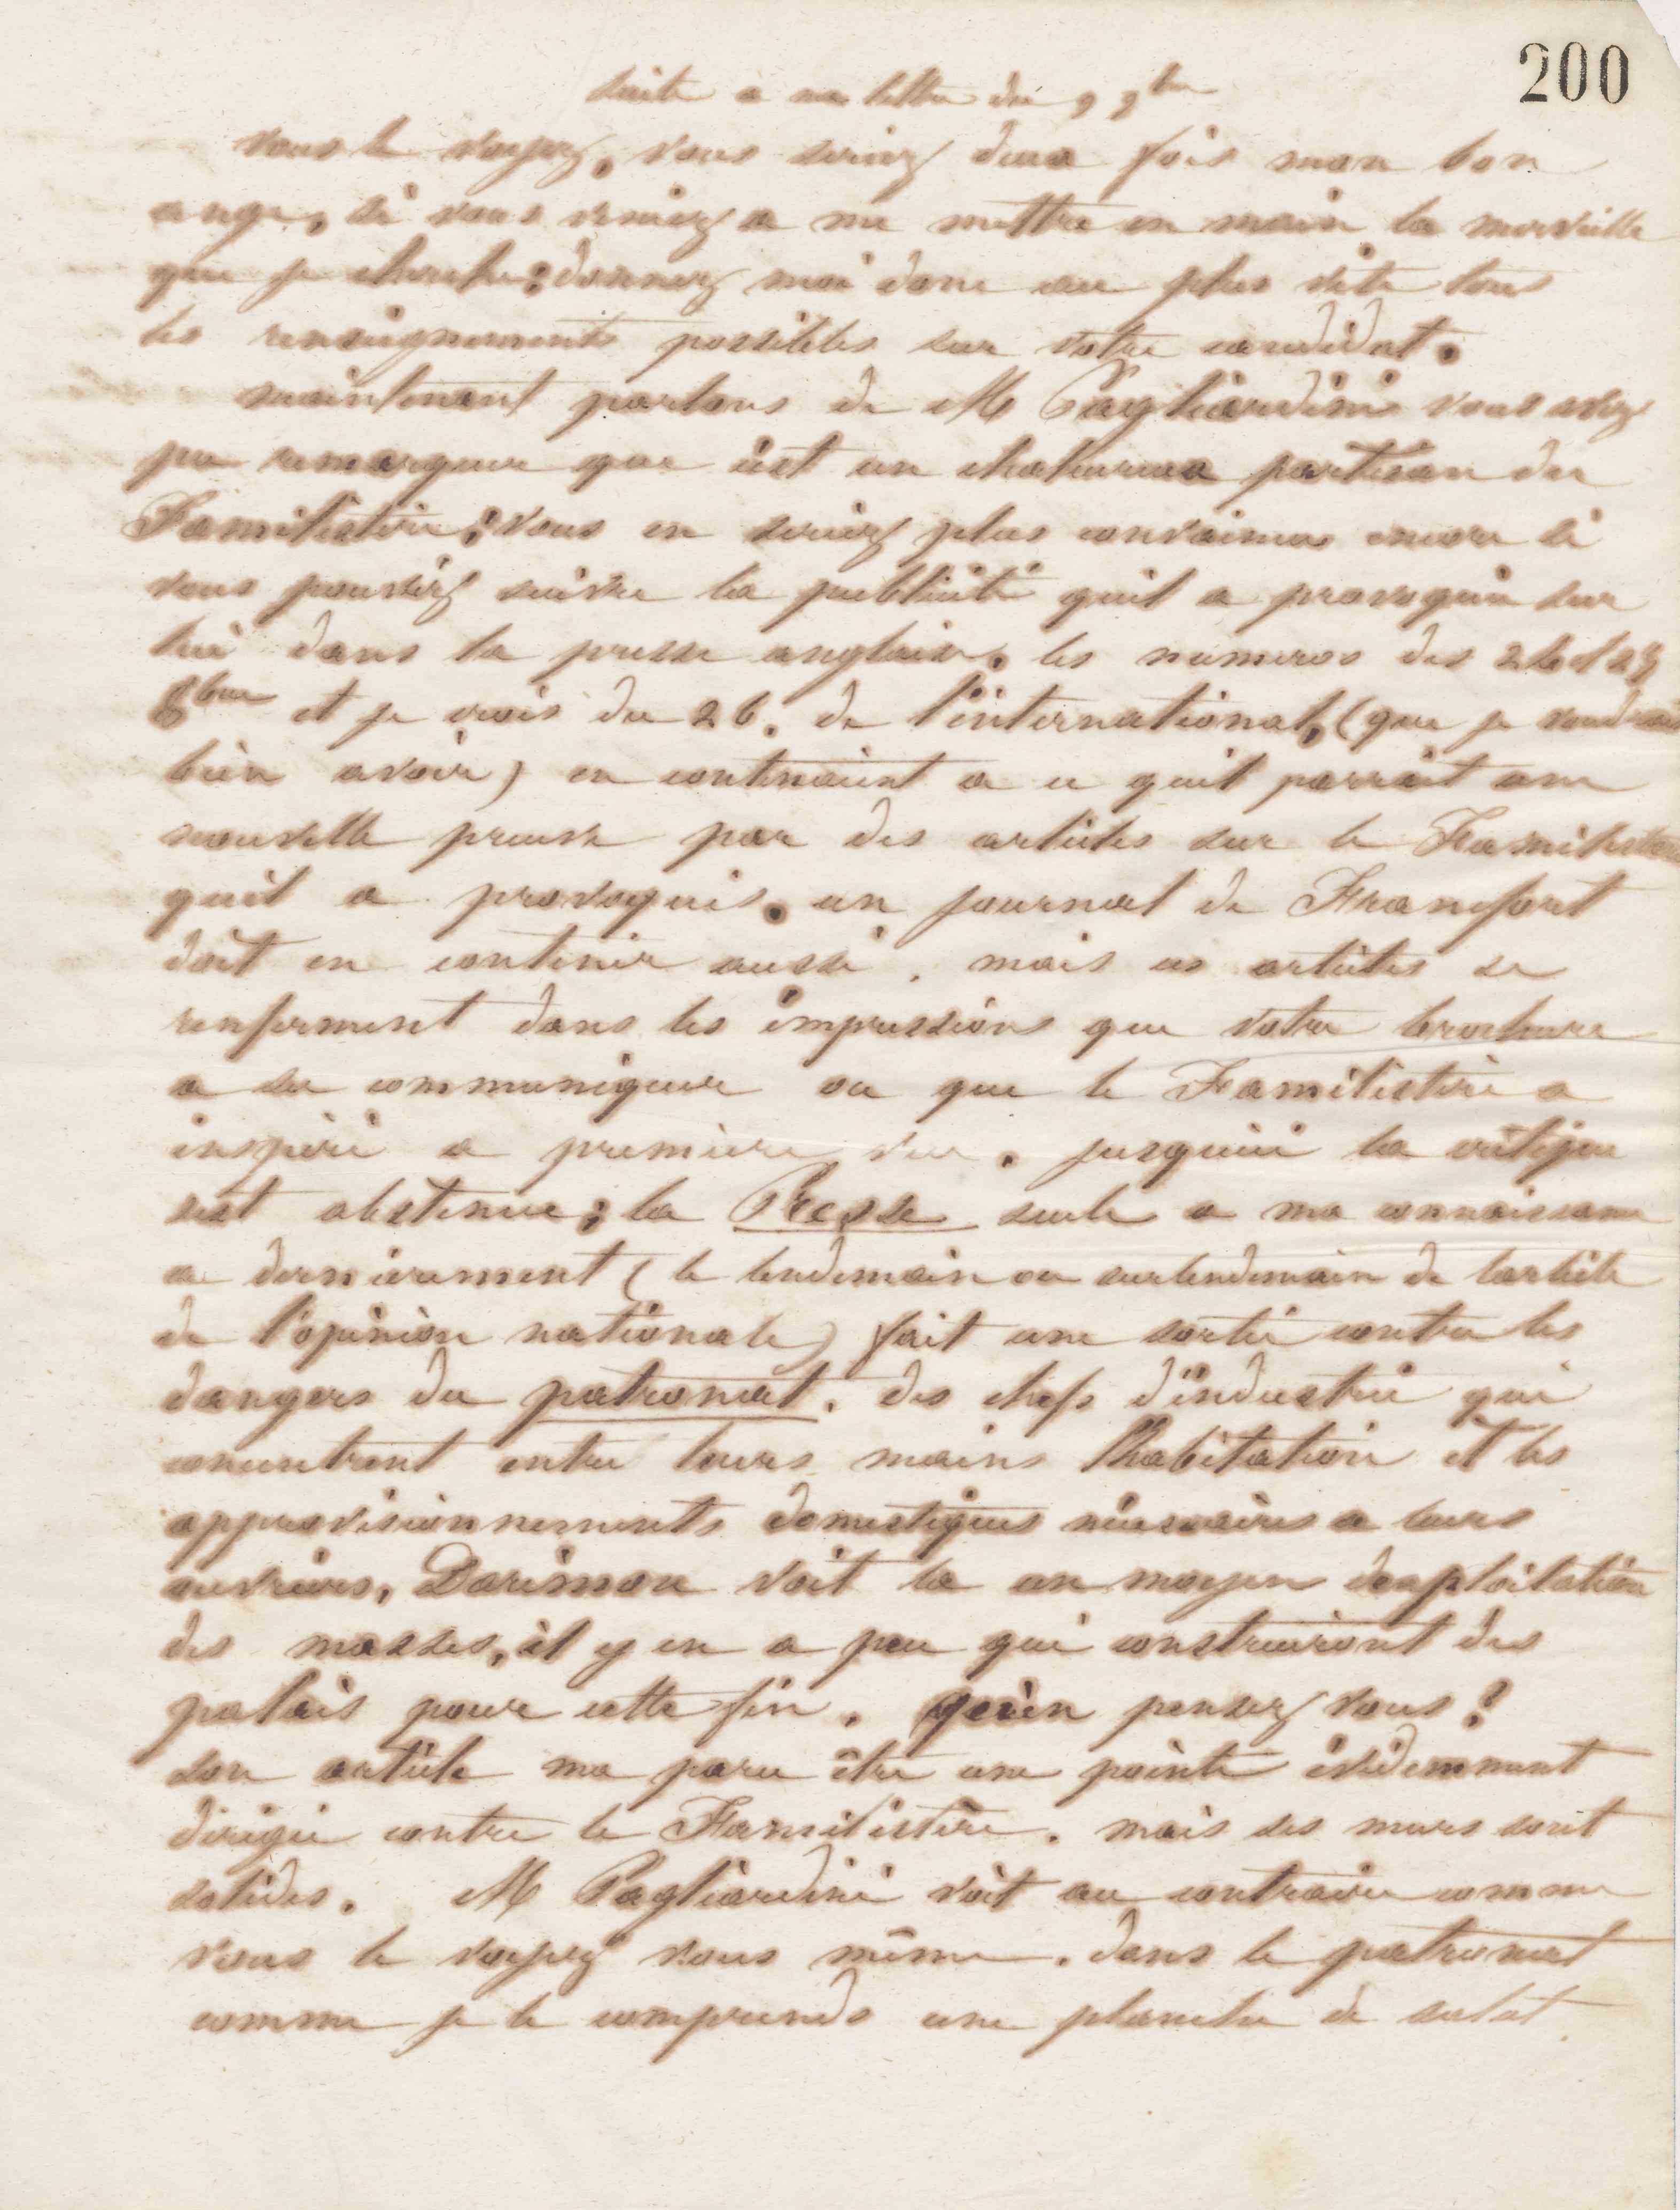 200
suite a ma lettre du 9 9bre
vous le voyez, vous seriez deux fois mon bon
ange, si vous veniez a me mettre en main la merveille
que je cherche; donnez moi donc au plus vite tous
les renseignements possibles sur votre candidat.
maintenant parlons de M Pagliardini vous avez
pu remarquer que c'est un chaleureux partisan du
Familistère; vous en seriez plus convaincus encore si
vous pouviez suivre la publicité quil a provoquée sur
lui dans la presse anglaise. les numeros des 24 et 25
8bre et je crois du 26. de l'international, (que je voudrais
bien avoir) en contenaient a ce quil parrait une
nouvelle preuve par des articles sur le Familistère
quil a provoqués. un journal de Francfort
doit en contenir aussi. mais ces articles se
renferment dans les impressions que votre brochure
a su communiquer ou que le Familistère a
inspiré a premiere vue. jusquici la critique
sest abstenue; la Presse seule a ma connaissance
a dernierement (le lendemain ou surlendemain de larticle
de l'opinion nationale) fait une sortie contre les
dangers du patronat. des chefs d'industrie qui
concentrent entre leurs mains l'habitation et les
approvisionnements domestiques nécessaires a leurs
ouvriers, Darimon voit la un moyen dexploitation
des masses, il y en a peu qui construiront des
palais pour cette fin. qu'en pensez vous?
son article ma paru être une pointe évidemment
dirigée contre le Familistère. mais ses murs sont
solides. M Pagliardini voit au contraire comme
vous le voyez vous même. dans le patronat
comme je le comprends une planche de salut.